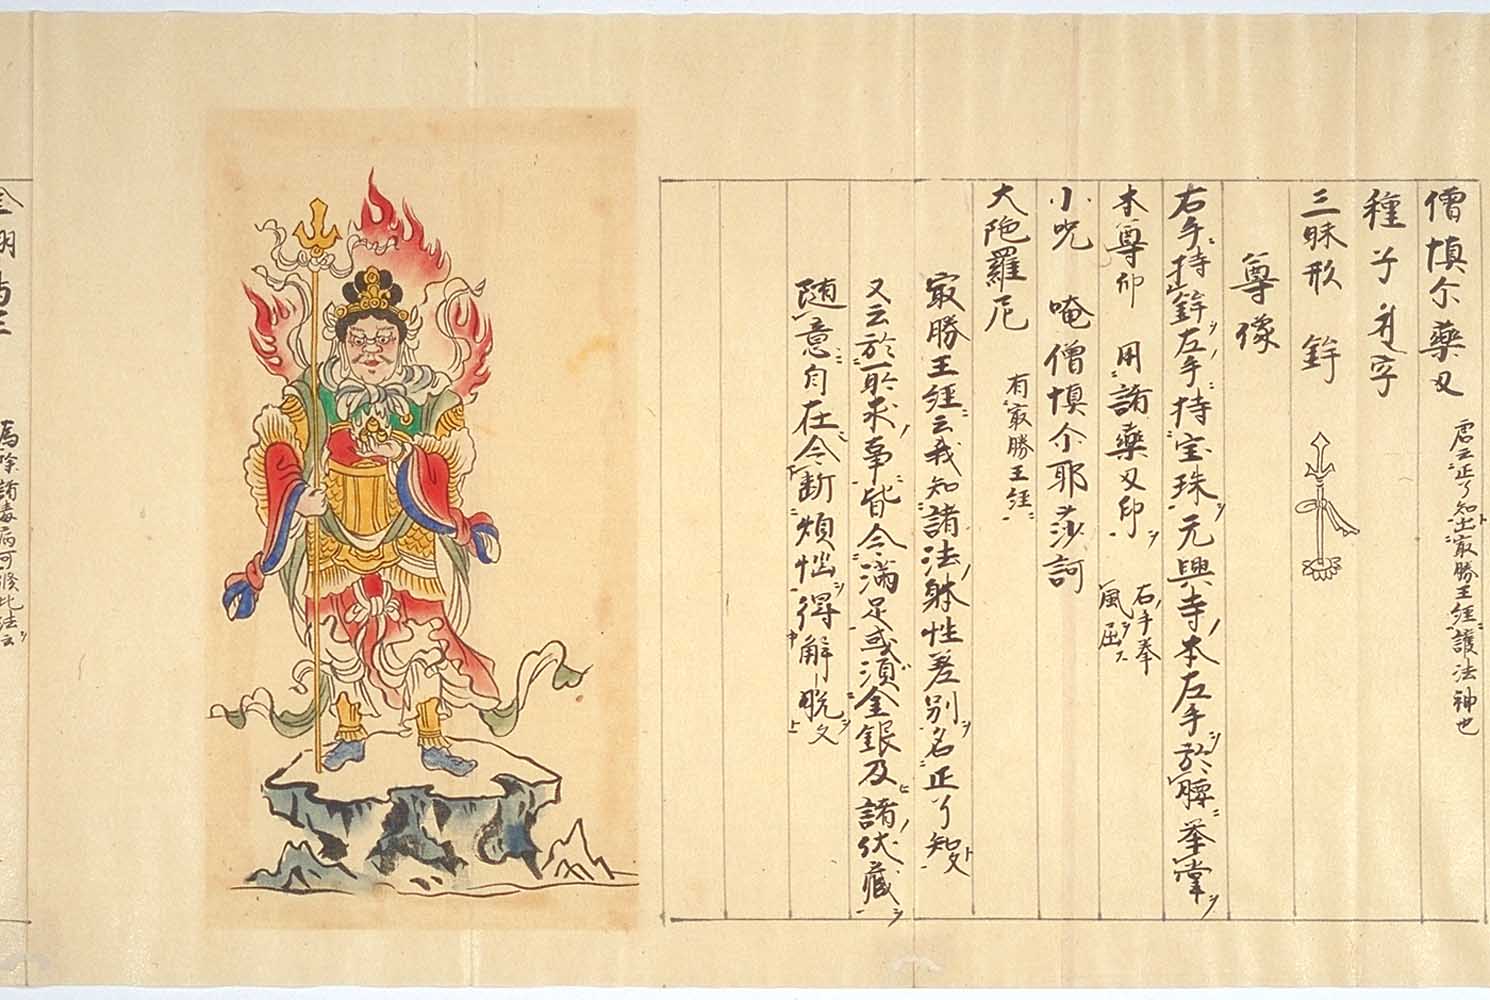 僧慎尓藥叉 唐云正了知出㝡勝王經護法神也
種子 字
三昧形 鉾
尊像
右手持鉾左手持宝珠元興寺本左手於髀挙掌
本尊印 用諸藥叉印 右手拳風屈
小咒 唵僧慎尓耶莎訶
大陀羅尼 有㝡勝王經
㝡勝王經云我知諸法躰性差別名正了知文
又云於所求事皆令滿足或須金銀及諸伏藏
随意自在令断煩悩得解脱文
為除諸毒病可修此法云